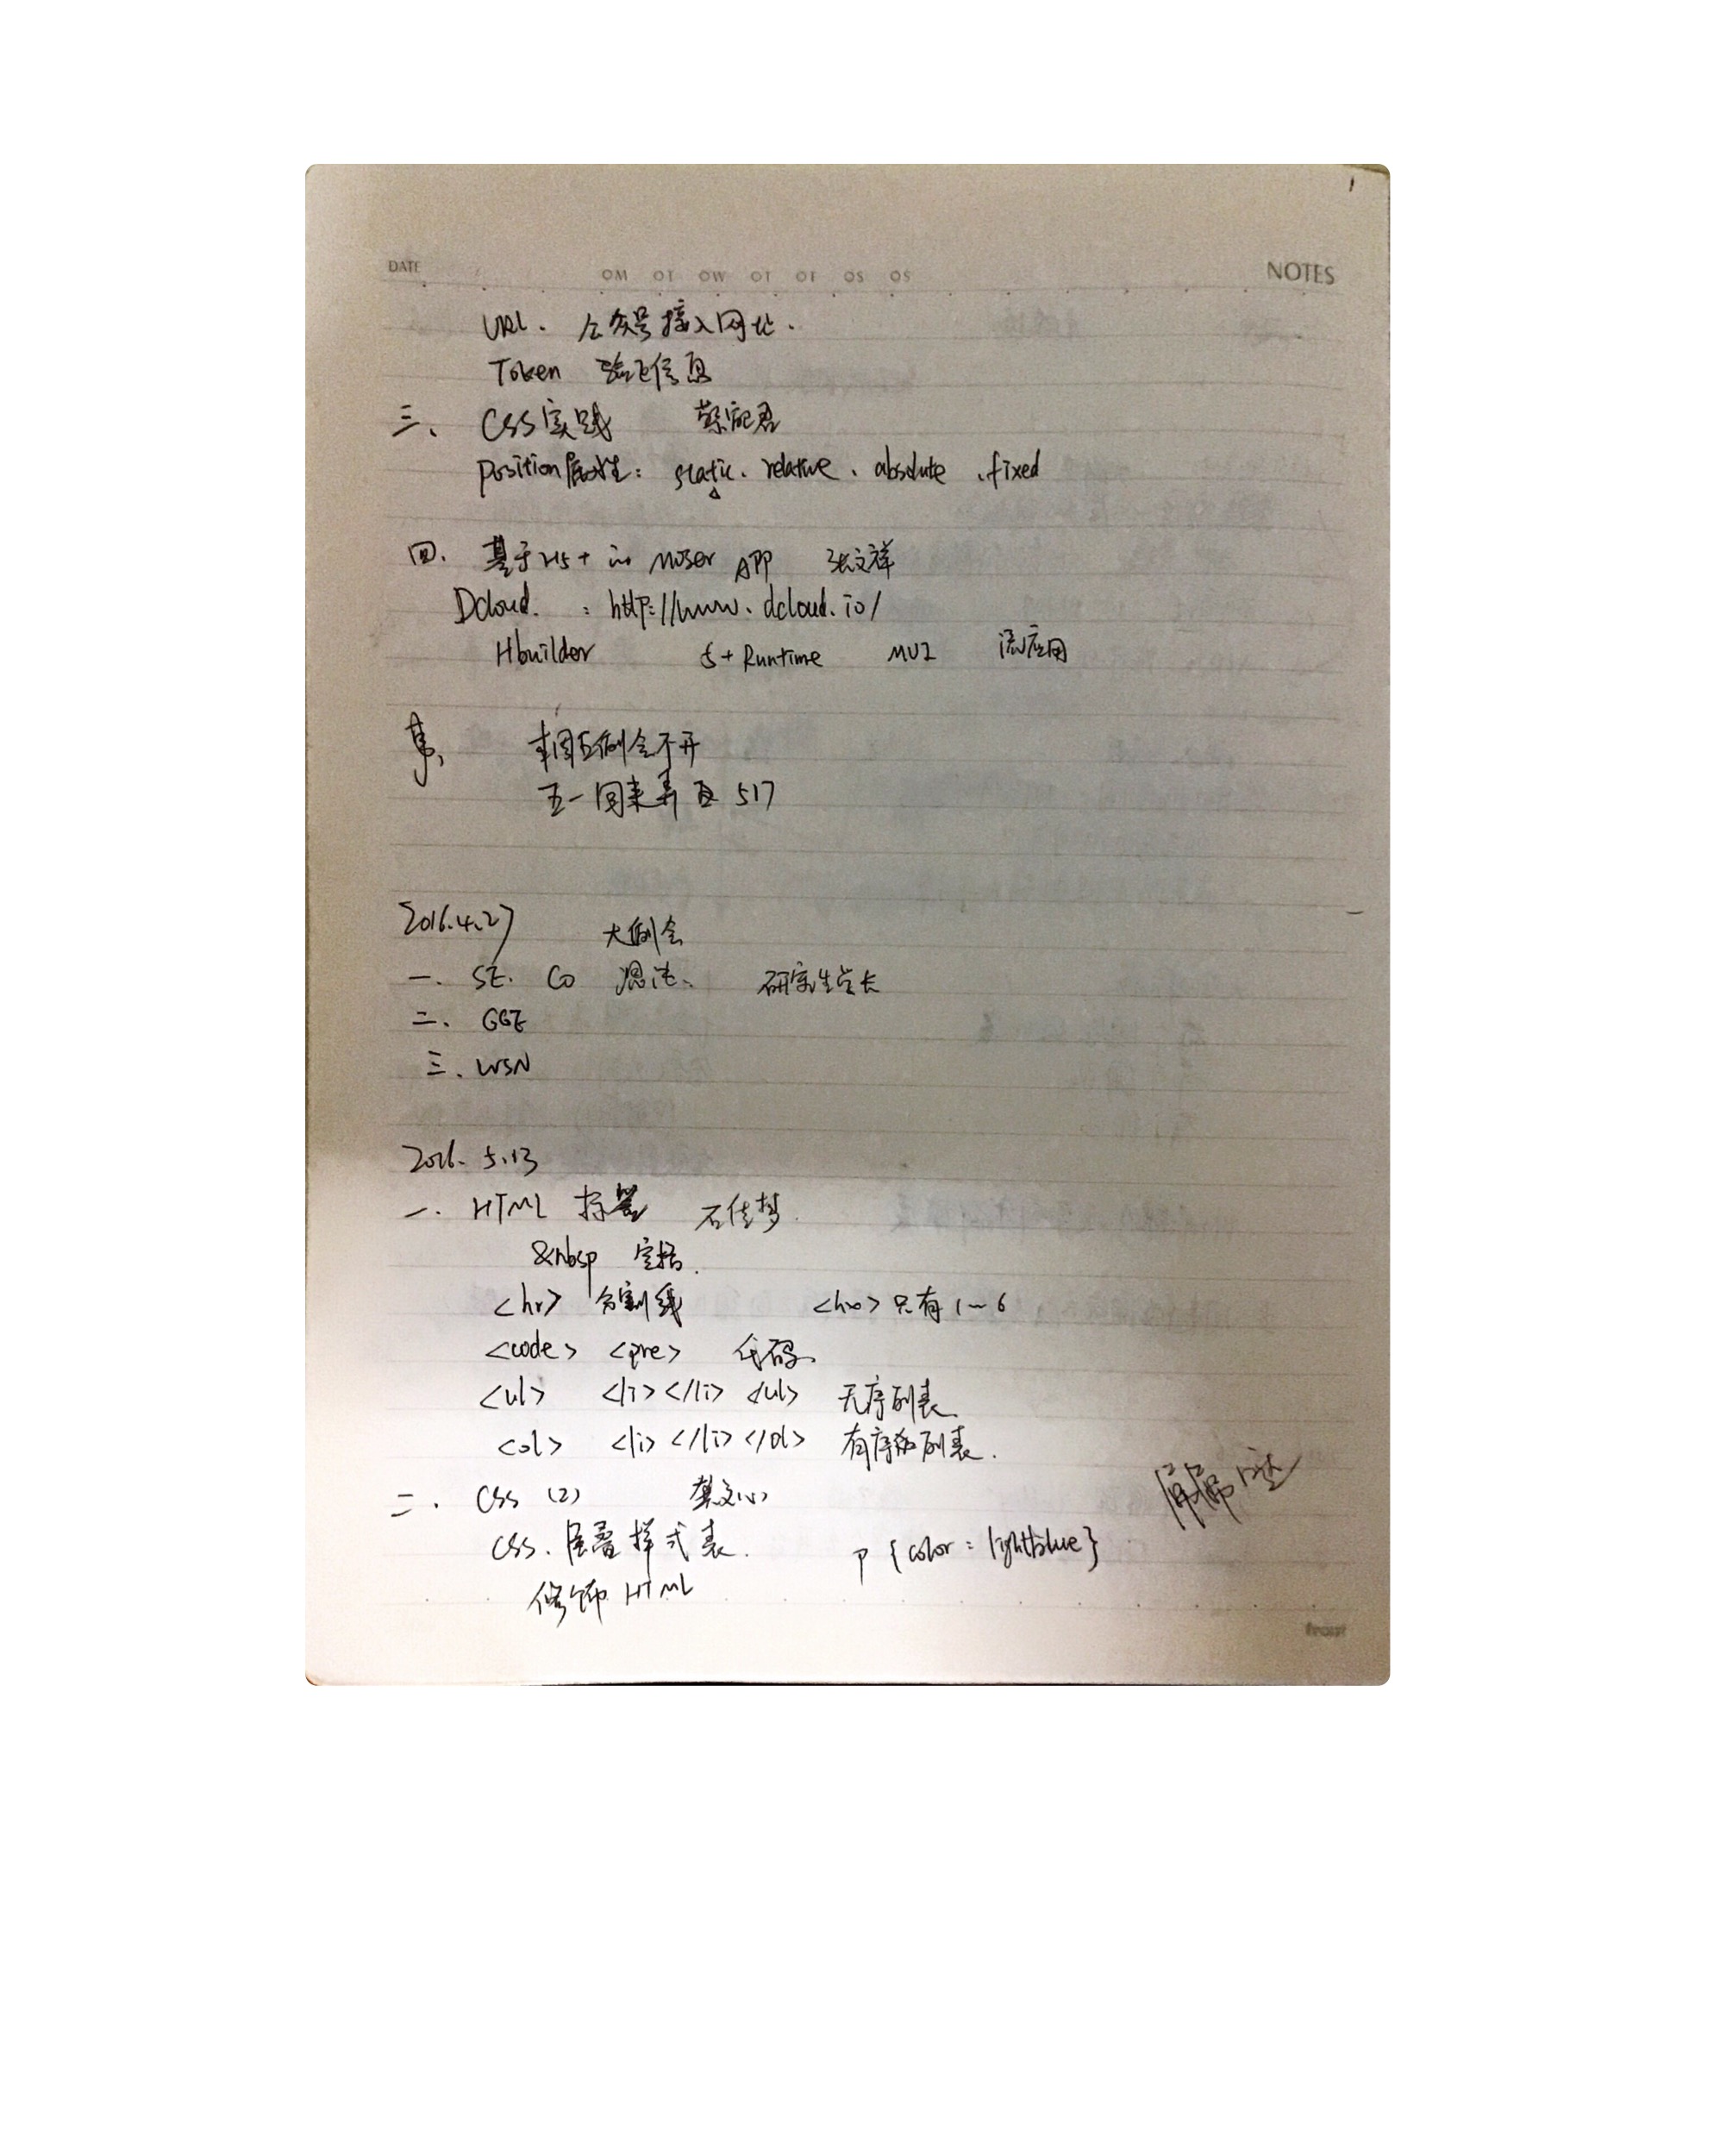 DATE OM OT OW OT OF OS OS NOTES
URL. 公众号接入网址.
Token 验证信息
三、 CSS实践
Position属性: static、relative、absolute、fixed
四. 基于H5+ 的 APP 张文祥
Dcloud. : http://www.dcloud.io/
Hbuilder 5+ Runtime MUI 流应用
本周五例会不开
五一回来弄 517
2016.4.27 大例会
一. SE. Co 研究生学长
二、 GGE
三. WSN
2016. 5.13
一. HTML 标签 石佳梦.
&nbsp 空格.
<hr> 分割线 <hx> 只有 1~6
<code> <pre> 代码.
<ul> <li></li> </ul> 无序列表
<ol> <li> </li> </ol> 有序列表.
二. CSS (2) 龚文心
CSS. 层叠样式表. p {color: lightblue}
修饰 HTML